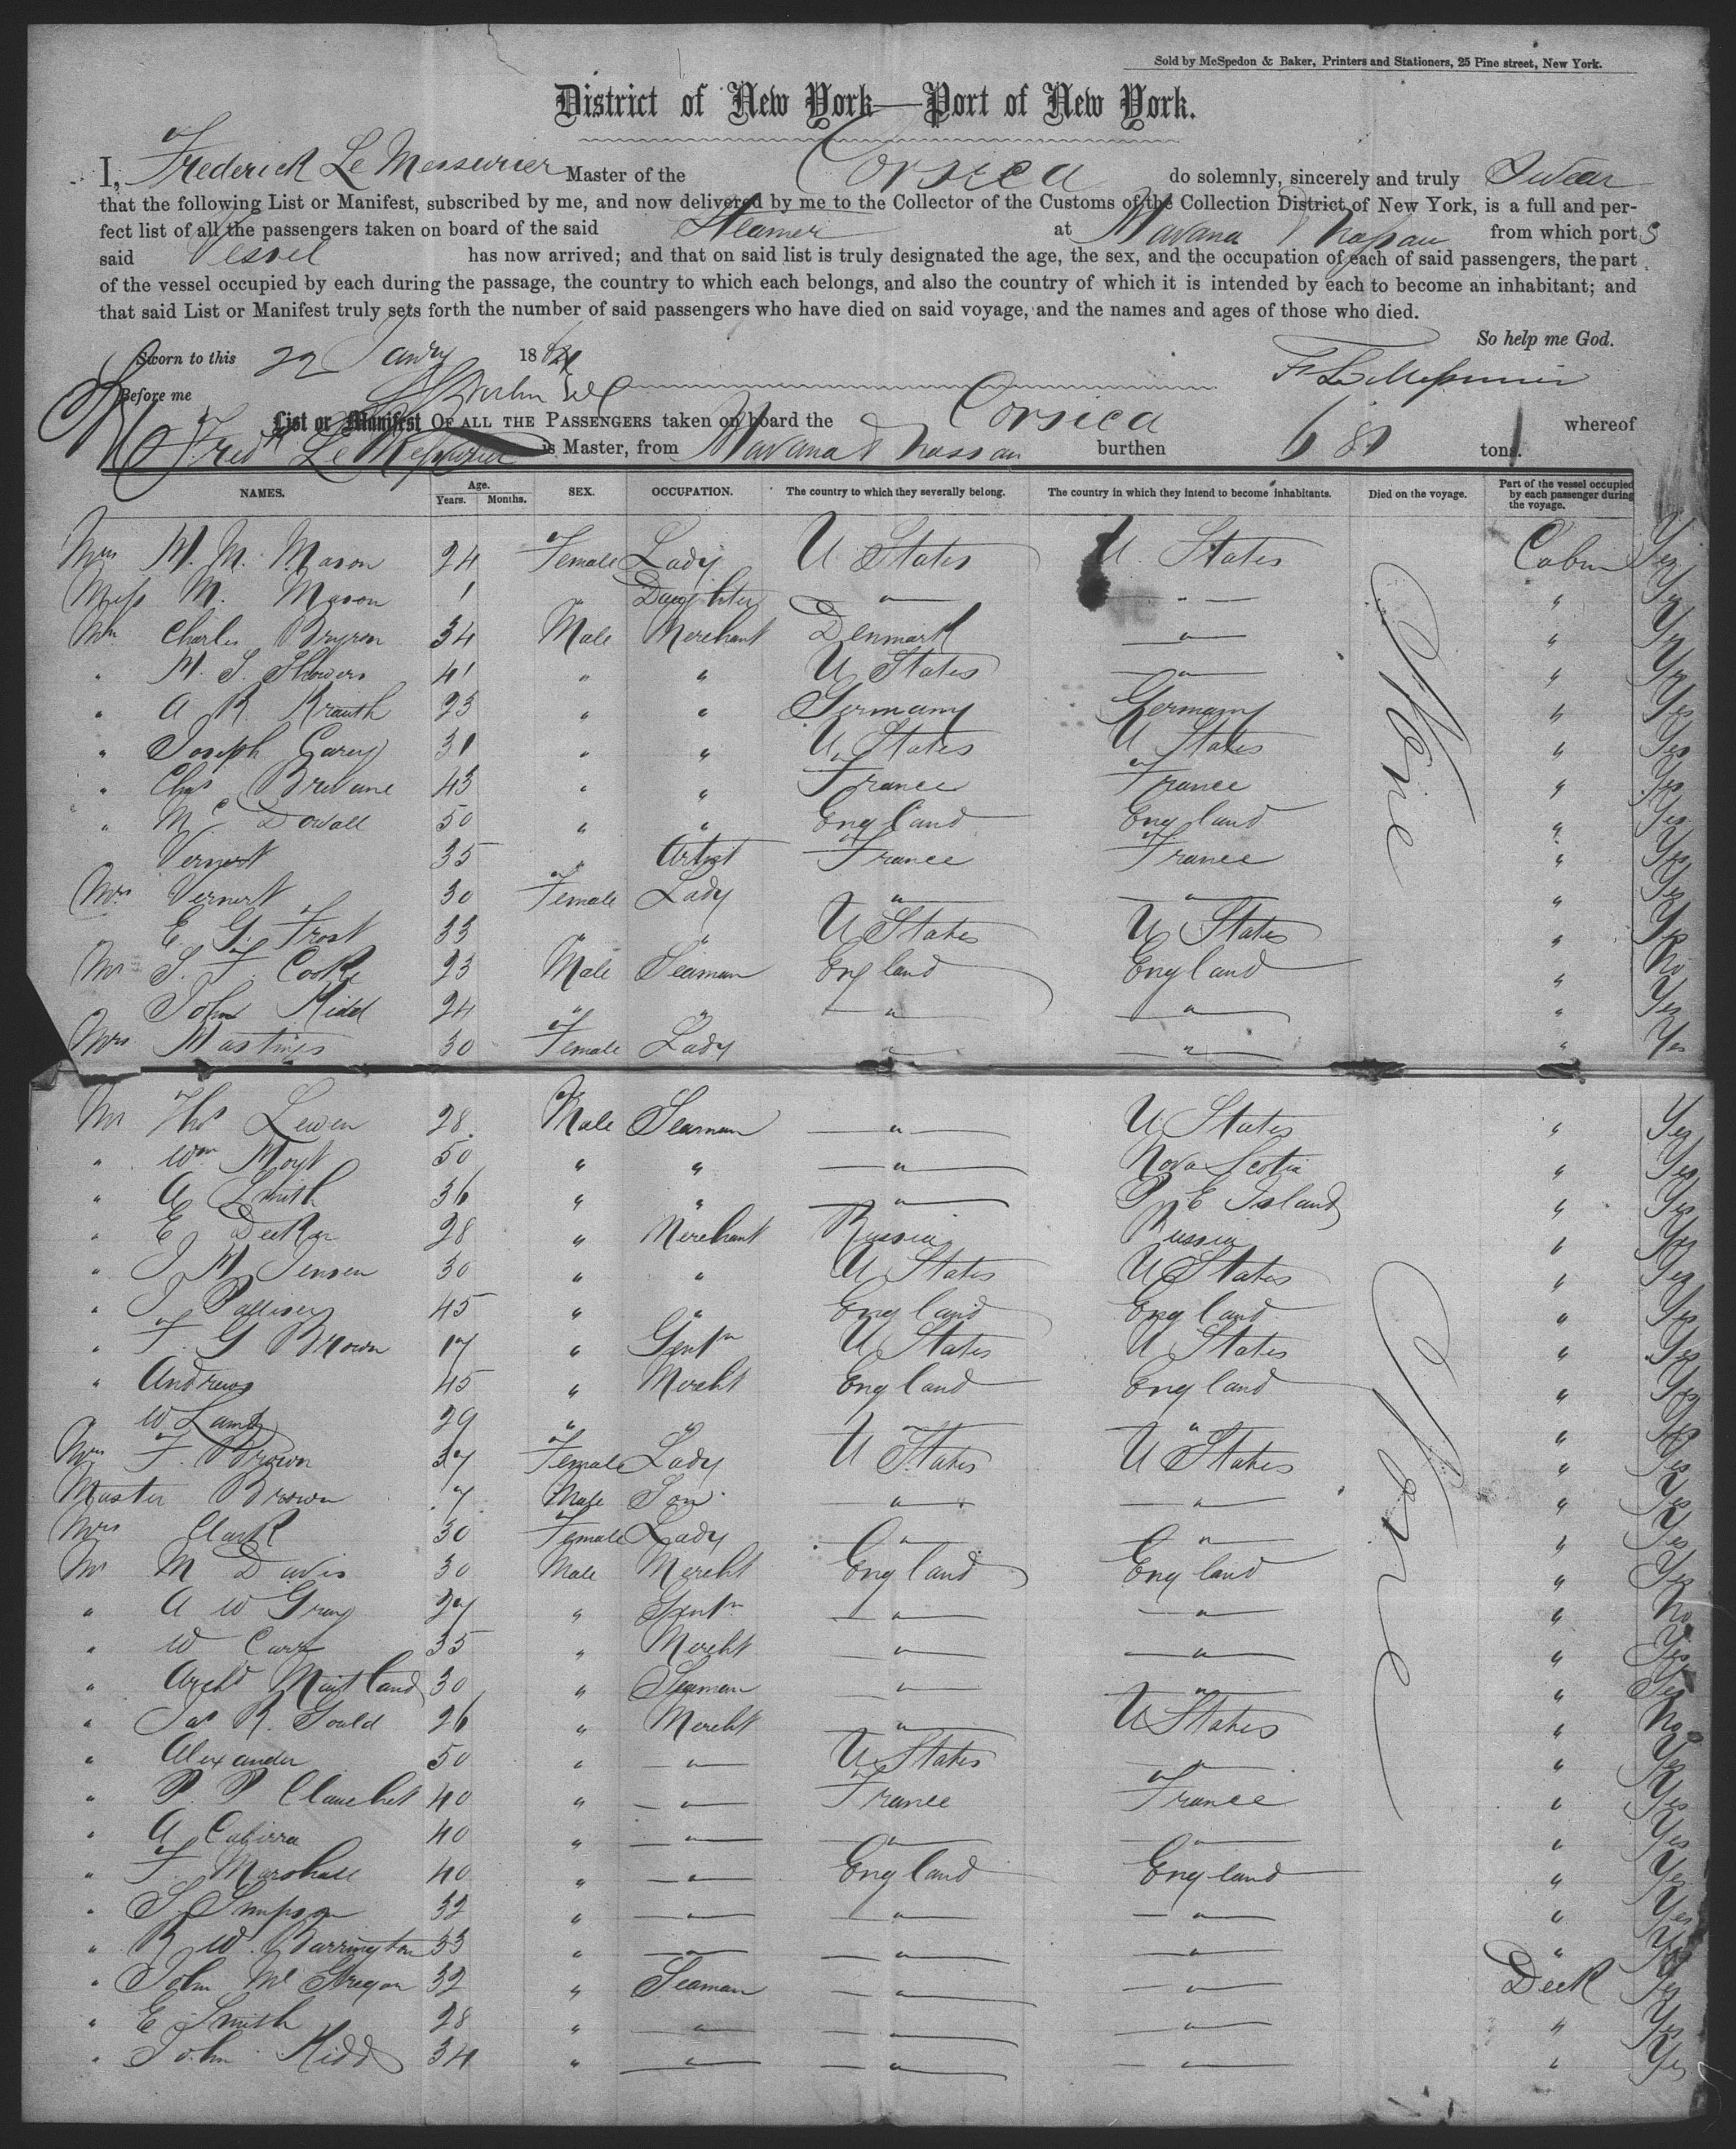 Sold by McSpedon & Baker, Printers and Stationers, 25 Pine street, New York.
District of New York—Port of New York.
I, Frederick Le Messurier Master of the Corsica do solemnly, sincerely and truly Swear
that the following List or Manifest, subscribed by me, and now delivered by me to the Collector of the Customs of the Collection District of New York, is a full and per-
fect list of all the passengers taken on board of the said Steamer at Havana & Nassau from which ports
said Vessel has now arrived; and that on said list is truly designated the age, the sex, and the occupation of each of said passengers, the part
of the vessel occupied by each during the passage, the country to which each belongs, and also the country of which it is intended by each to become an inhabitant; and
that said List or Manifest truly sets forth the number of said passengers who have died on said voyage, and the names and ages of those who died.
So help me God.
Sworn to this 22 Janry 186
F Le Messurier
Before me
List or Manifest OF ALL THE PASSENGERS taken on board the Corsica whereof
Fredk Le Messurier is Master, from Havana & Nassau burthen tons.
NAMES. Age. Years. Months. SEX. OCCUPATION. The country to which they severally belong. The country in which they intend to become inhabitants. Died on the voyage. Part of the vessel occupied by each passenger during the voyage.
Mrs H. M. Mason 24 Female Lady U States U. States Cabin Yes
Miss M. Mason 1 " Daughter " " " Yes
Mr Charles 34 Male Merchant Denmark " " Yes
" " " U States " " Yes
" A R. Krauth 23 " " Germany Germany " Yes
" Joseph Carey 31 " " U. States U States " Yes
" Chas 43 " " France France " Yes
" Mc Dowall 50 " " England England " Yes
35 " Artist France France " Yes
Mrs 30 Female Lady " " " Yes
" E. G. Frost 33 " " U States U States " Yes
Mr S. F. Cooke 23 Male Seaman England England " No
John Kidd 24 " " " " " Yes
Mrs Hastings 30 Female Lady " " " Yes
None
Mr Thos Lewen 28 Male Seaman " U States " Yes
" Wm Hoyt 50 " " " Nova Scotia " Yes
" A Smith 36 " " " P E Island " Yes
" E Decker 28 " Merchant Russia Russia " Yes
" J H Jensen 30 " " U States U States " Yes
" J Palliser 45 " " England England " Yes
" F. G Brown 17 " Gentn U States U States " Yes
" Andrews 45 " Mercht England England " Yes
" W Lamb 29 " " " " " Yes
Mrs F. Brown 37 Female Lady U States U States " Yes
Master Brown 7 Male Son " " " Yes
Mrs Clark 30 Female Lady " " " Yes
Mr M Davis 30 Male Mercht England England " Yes
" A W Gray 27 " Gentn " " " No
" W Carr 35 " Mercht " " " Yes
" Archd Maitland 30 " Seaman " " " Yes
" Jas R. Gould 26 " Mercht " U States " No
" Alexander 50 " " U States " " Yes
" P. P Clauchet 40 " " France France " Yes
" A 40 " " " " " Yes
" F. Marshall 40 " " England England " Yes
" S. Simpson 32 " " " " " Yes
" R. W. Barrington 33 " " " " "
" John McGregor 32 " Seaman " " Deck Yes
" E Smith 28 " " " " " Yes
" John Kidd 34 " " " " " Yes
None